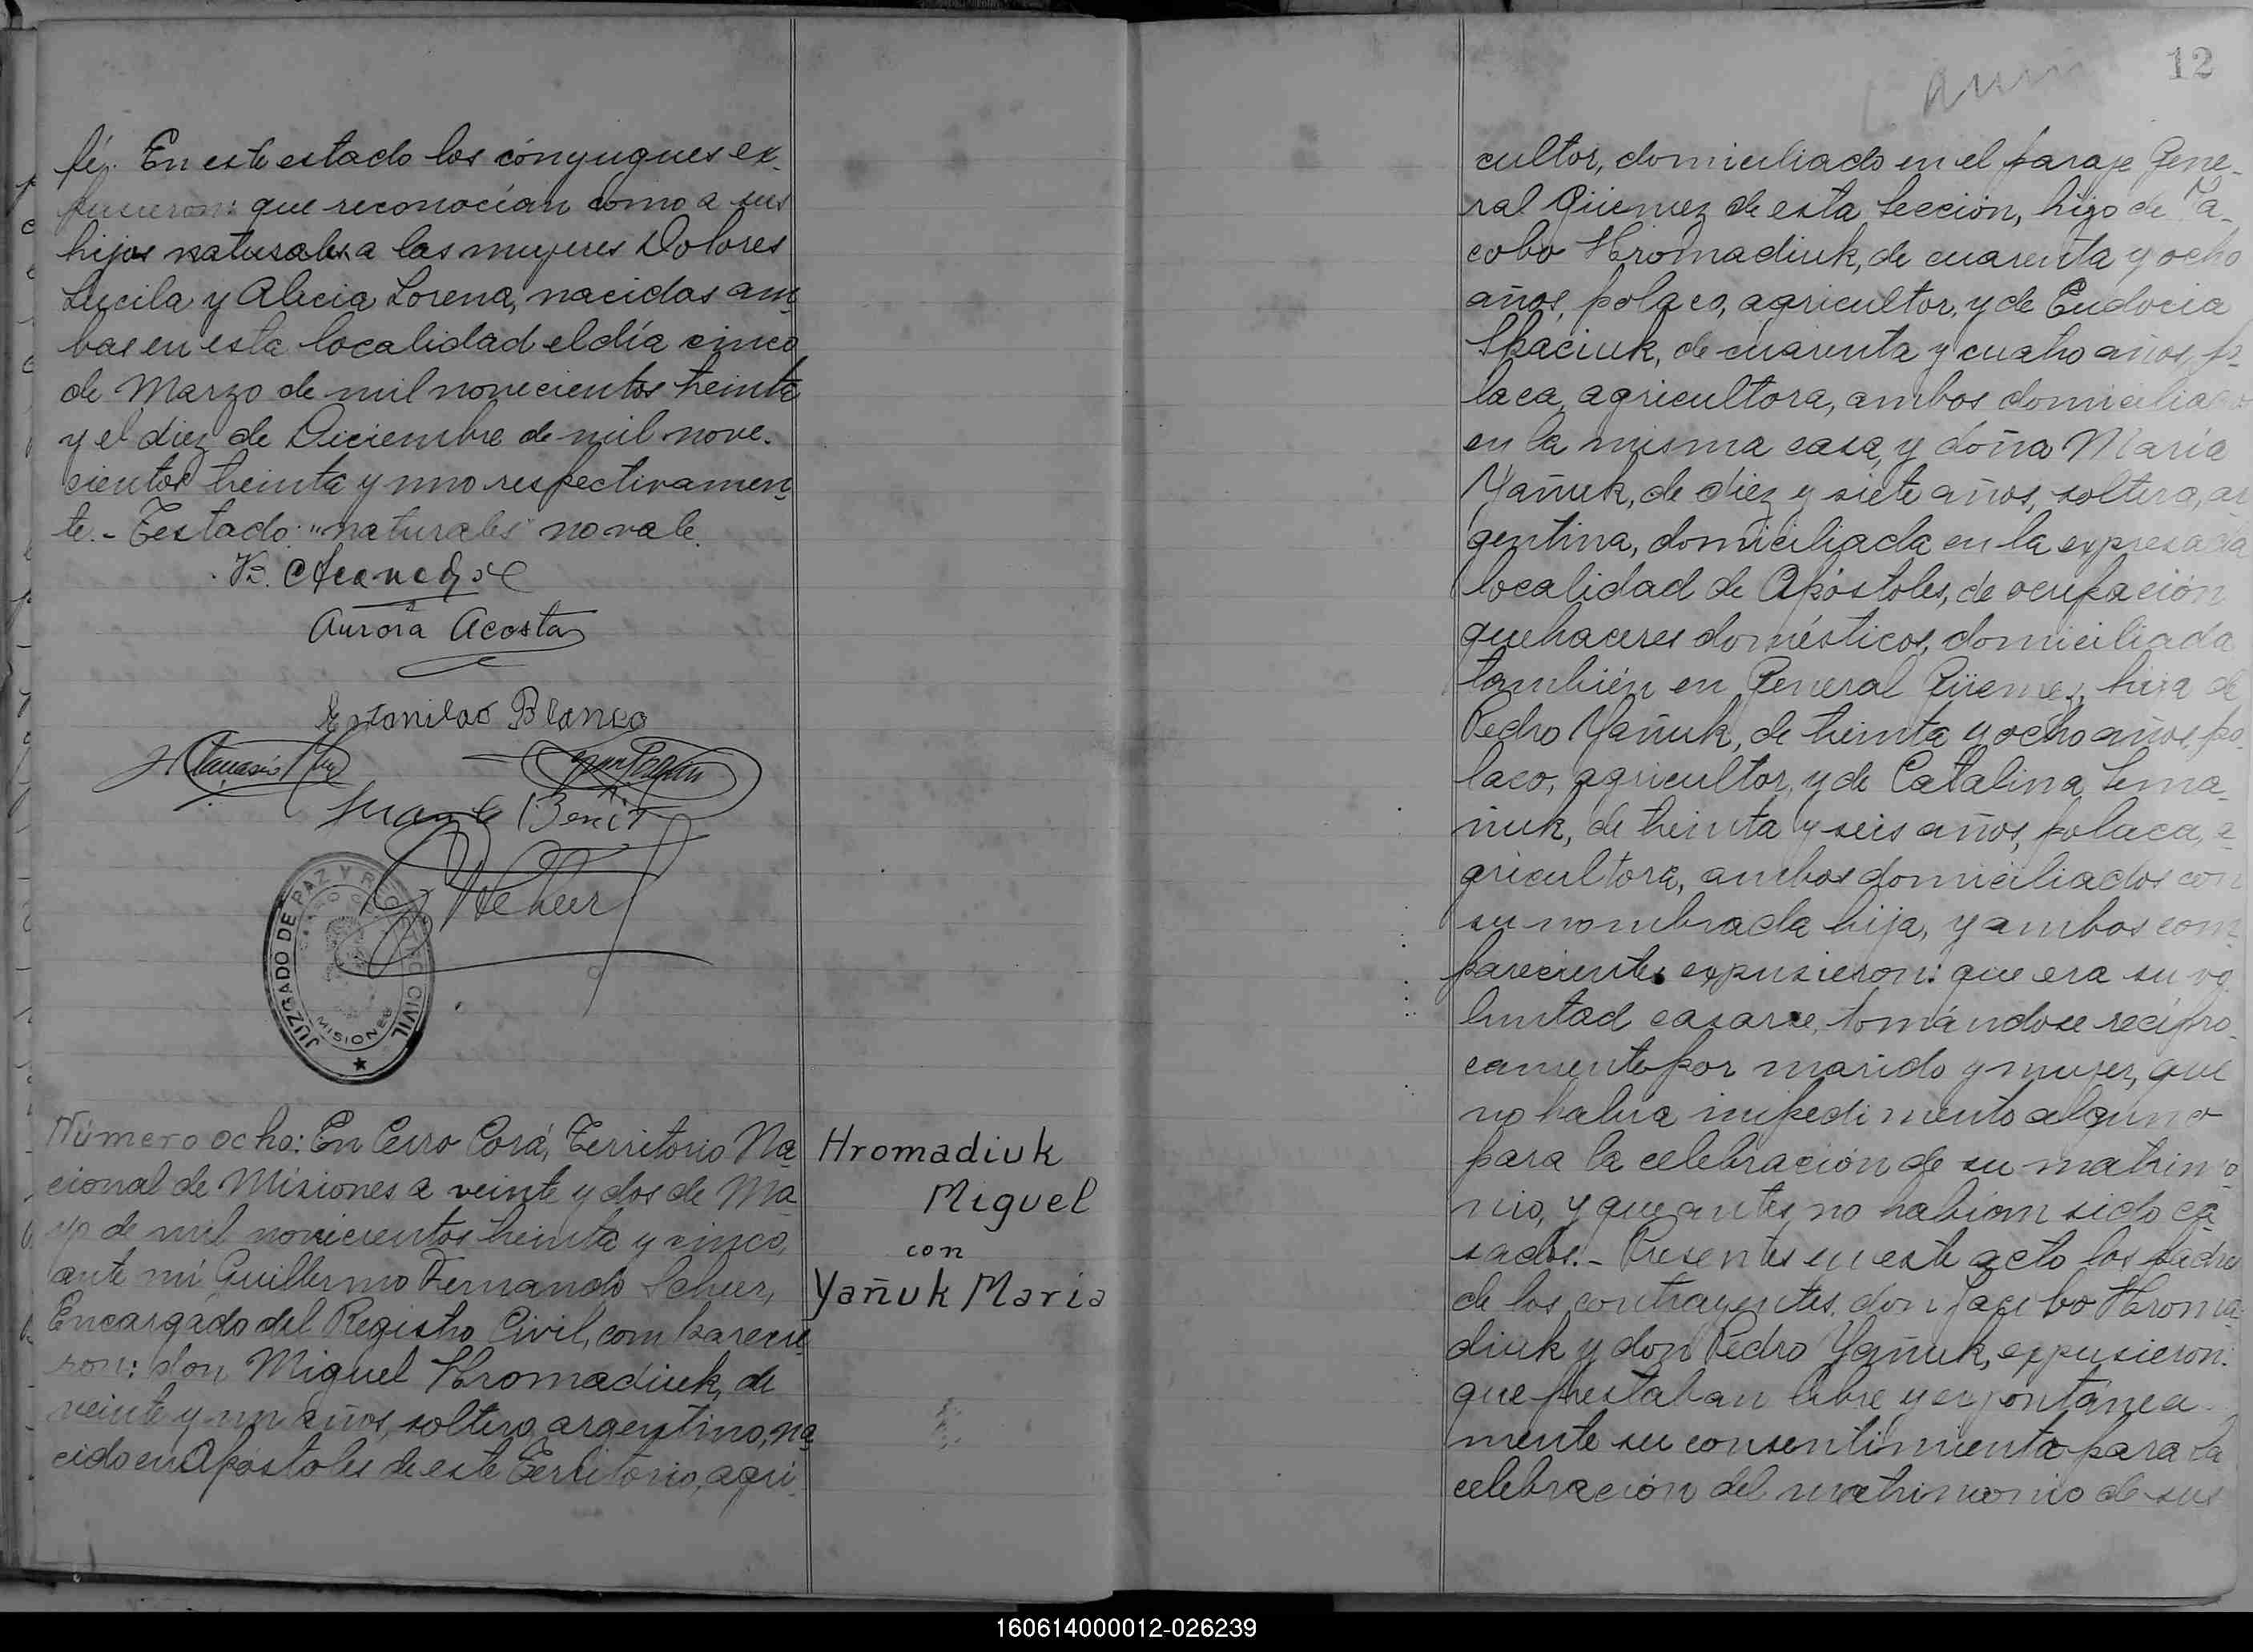 fé. En este estado los cónyugues ex-
pusieron: que reconocían como a sus
hijos naturales a las mujeres Dolores
Lucila y Alicia Lorena, nacidas am-
bas en esta localidad el día cinco
de Marzo de mil novecientos treinta
y el diez de Diciembre de mil nove-
cientos treinta y uno respectivamen-
te.- Testado: "naturales" no vale.
Aurora Acosta
Estanilao Blanco
Juan
JUZGADO DE PAZ Y REGISTRO CIVIL
MISIONES
Número ocho: En Cerro Corá, Territorio Na-
cional de Misiones a veinte y dos de Ma-
yo de mil novecientos treinta y cinco,
ante mí Guillermo Fernando Scheer,
Encargado del Registro Civil, comparecie-
ron: don Miguel Hromadiuk, de
veinte y un años, soltero, argentino, na-
cido en Apóstoles de este Territorio, agri-
Hromadiuk
Miguel
con
Yañuk Maria
12
cultor, domiciliado en el paraje Gene-
ral Güemez de esta Sección, hijo de Ja-
cobo Hromadiuk, de cuarenta y ocho
años, polaco, agricultor, y de Eudocia
Spaciuk, de cuarenta y cuatro años, po-
laca, agricultora, ambos domiciliados
en la misma casa, y doña María
Yañuk, de diez y siete años, soltera, ar
gentina, domiciliada en la expresada
localidad de Apóstoles, de ocupación
quehaceres domésticos, domiciliada
también en General Güemes, hija de
Pedro Yañuk, de treinta y ocho años, po-
laco, agricultor, y de Catalina Sema-
ñuk, de treinta y seis años, polaca, a-
gricultora, ambos domiciliados con
su nombrada hija, y ambos com-
parecientes expusieron: que era su vo-
luntad casarse, tomándose recípro-
camente por marido y mujer, que
no había impedimento alguno
para la celebración de su matrimo-
nio, y que antes no habían sido ca-
sados.- Presentes en este acto los padres
de los contrayentes, don Jacobo Hroma-
diuk y don Pedro Yañuk, expusieron:
que prestaban libre y espontánea-
mente su consentimiento para la
celebración del matrimonio de sus
160614000012-026239